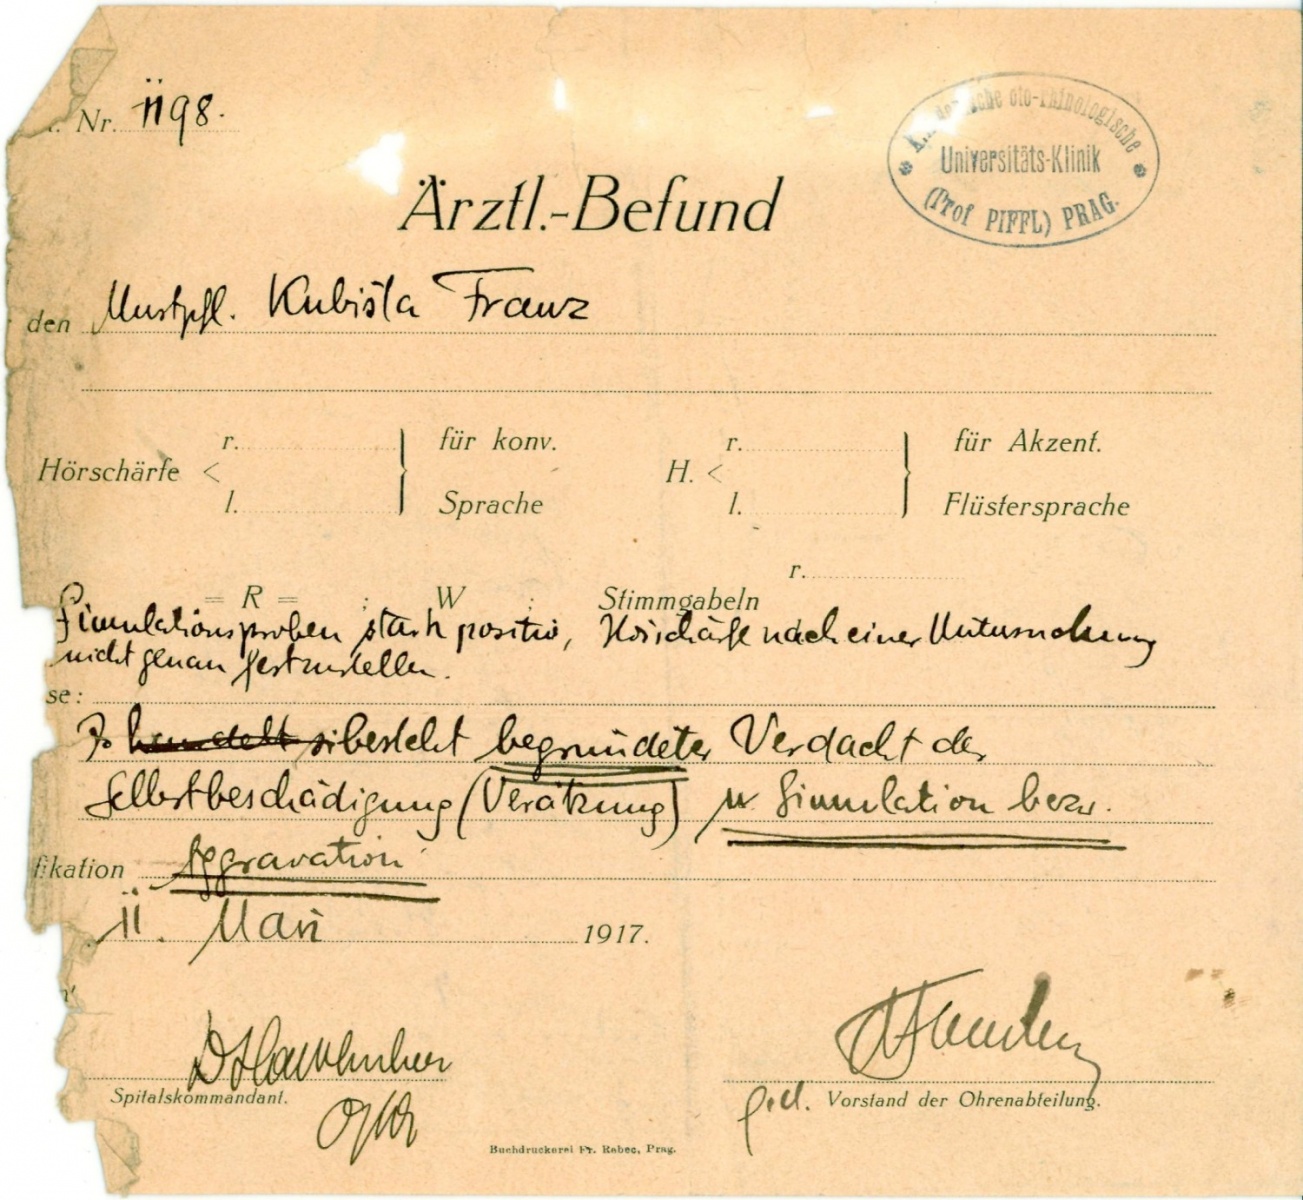 Nr. 1198.
deutsche oto-rhinologische
Universitäts-Klinik
(Prof PIFFL) PRAG.
Ärztl.-Befund
den Mustpfl. Kubišta Franz
r. für konv. r. für Akzent.
Hörschärfe < H. <
l. Sprache l. Flüstersprache
r.
= R = ; W ; Stimmgabeln
Simulationsproben stark positiv, Hörschärfe nach einer Untersuchung
nicht genau festzustellen.
se:
Es handelt si besteht begründeter Verdacht der
Selbstbeschädigung (Verätzung) u Simulation bezw.
fikation Aggravation
11. März 1917.
Spitalskommandant.
Vorstand der Ohrenabteilung.
Buchdruckerei Fr. Rabec, Prag.